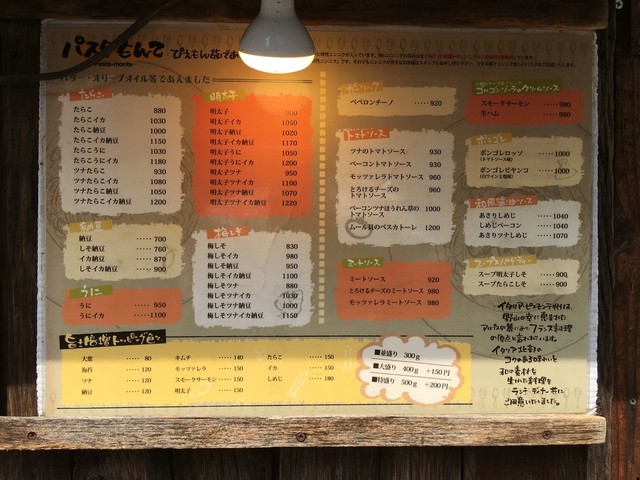 パスタもんて
Pasta-monte
バター・オリーブオイル等であえました
たらこ
たらこ 880
たらこイカ 1030
たらこ納豆 1000
たらこイカ納豆 1150
たらこうに 1030
たらこうにイカ 1180
ツナたらこ 930
ツナたらこイカ 1080
ツナたらこ納豆 1050
ツナたらこイカ納豆 1200
納豆
納豆 ····· 700
しそ納豆 ····· 760
イカ納豆 ····· 870
しそイカ納豆 ····· 900
うに
うに ····· 950
うにイカ ····· 1100
明太子
明太子 900
明太子イカ 1050
明太子納豆 1020
明太子イカ納豆 1170
明太子うに 1050
明太子うにイカ 1200
明太子ツナ 950
明太子ツナイカ 1100
明太子ツナ納豆 1070
明太子ツナイカ納豆 1220
梅しそ
梅しそ 830
梅しそイカ 980
梅しそ納豆 950
梅しそイカ納豆 1100
梅しそツナ 880
梅しそツナイカ 1030
梅しそツナ納豆 1000
梅しそツナイカ納豆 1150
ペペロンチーノ ····· 920
トマトソース
ツナのトマトソース 930
ベーコントマトソース 930
モッツァレラトマトソース 960
とろけるチーズの
トマトソース 960
ベーコンツナほうれん草の
トマトソース 1000
ムール貝のペスカトーレ 1200
ミートソース
ミートソース 920
とろけるチーズのミートソース 980
モッツァレラミートソース 980
ゴルゴンゾーラのクリームソース
スモークサーモン ····· 980
生ハム ····· 980
ボンゴレ
ボンゴレロッソ ····· 1000
(トマトソース味)
ボンゴレビヤンコ ····· 1000
(白ワイン立塩味)
和風醤油ソース
あさりしめじ ····· 1040
しめじベーコン ····· 1040
あさりツナしめじ ····· 1070
スープスパゲティー
スープ明太子しそ ····· 900
スープたらこしそ ····· 900
旨さ倍増トッピング食ん
大葉 ····· 80
海苔 ····· 120
ツナ ····· 120
納豆 ····· 120
キムチ ····· 140
モッツァレラ ····· 150
スモークサーモン ····· 150
明太子 ····· 150
たらこ ····· 150
イカ ····· 150
しめじ ····· 180
■並盛り 300g
■大盛り 400g +150円
■特盛り 500g +200円
イタリア・ピエモンテ州は、
野山の幸に恵まれ
アルプスの麓にあり フランス料理
の原点と言われています。
イタリア北部の
コクのある味わいと
和の素材を
生かした料理を
ランチ・ディナー共に
ご用意いたしました。